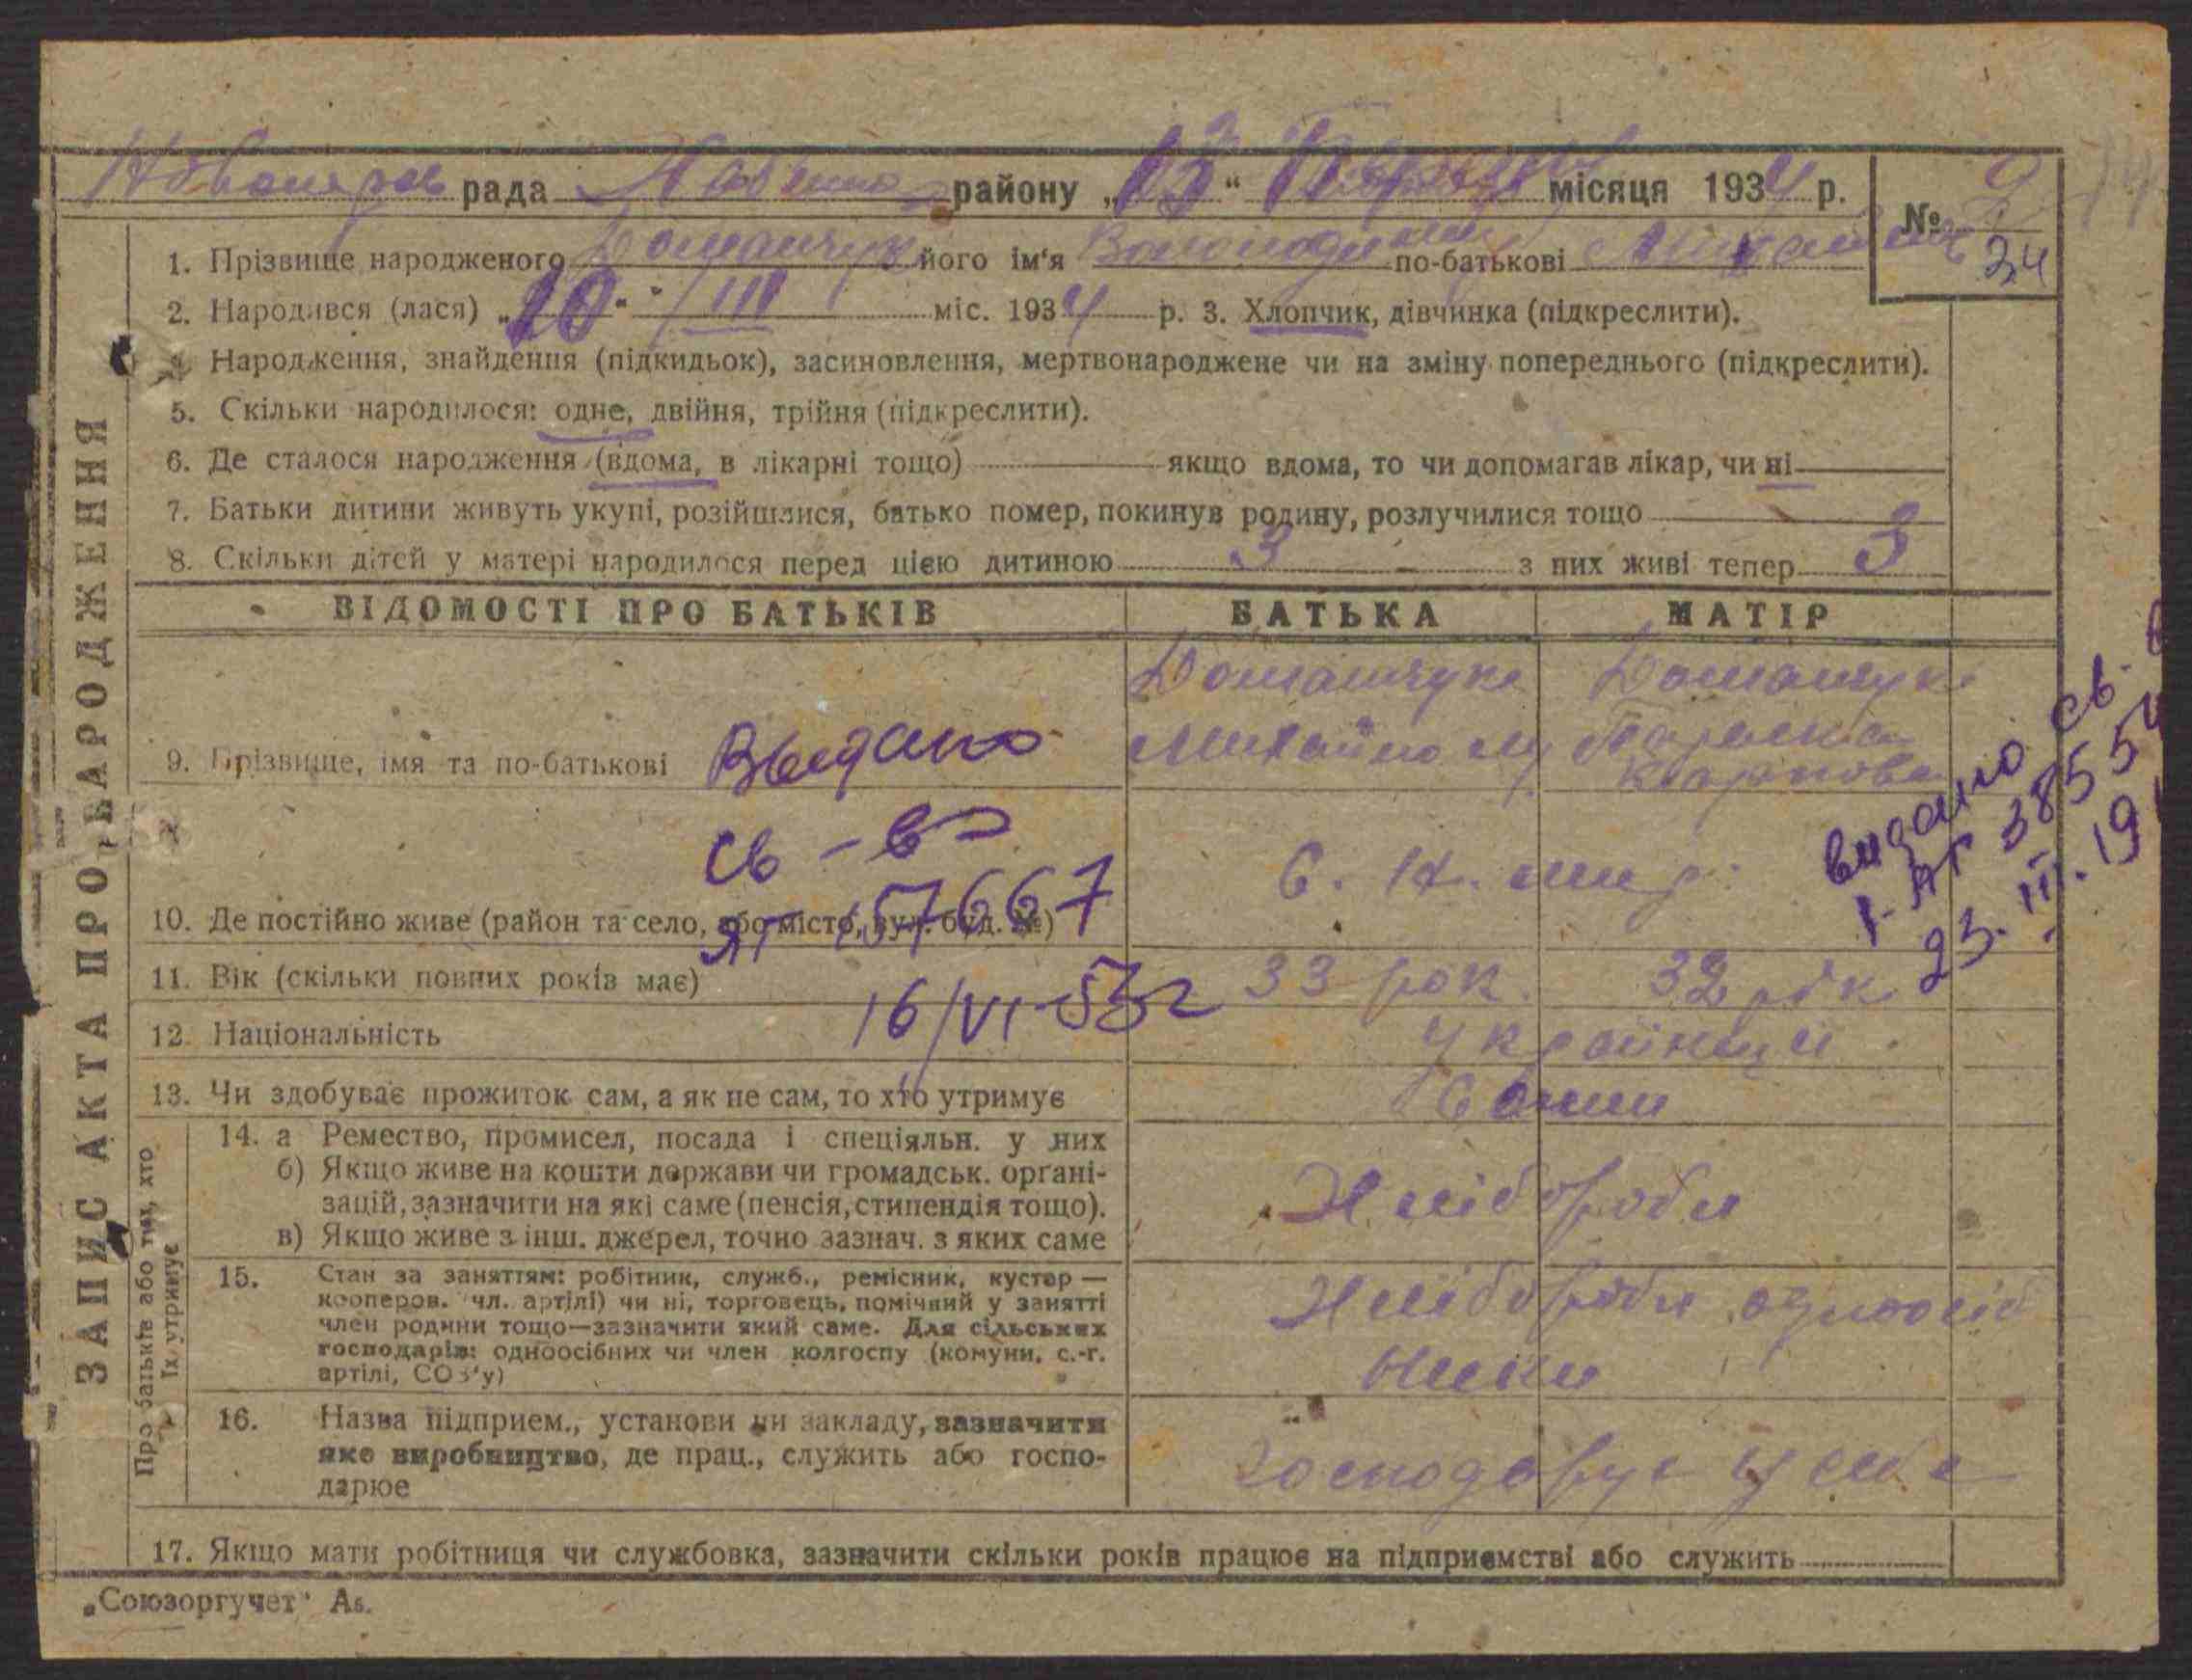 рада района „13“ місяця 1934 р. № 2
1. Прізвище народженого Домашчук його ім'я Володимир по-батькові 34
2. Народився (лася) „10“ /III міс. 1934 р. 3. Хлопчик, дівчинка (підкреслити).
4. Народження, знайдення (підкидьок), засиновлення, мертвонароджене чи на зміну попереднього (підкреслити).
5. Скільки народилося: одне, двійня, трійня (підкреслити).
6. Де сталося народження (вдома, в лікарні тощо) якщо вдома, то чи допомагав лікар, чи ні
7. Батьки дитини живуть укупі, розійшлися, батько помер, покинув родину, розлучилися тощо
8. Скільки дітей у матері народилося перед цією дитиною 3 з них живі тепер 3
ЗАПИС АКТА ПРО НАРОДЖЕННЯ
ВІДОМОСТІ ПРО БАТЬКІВ БАТЬКА МАТІР
Домашчук Домашчук
9. Прізвище, імя та по-батькові Выдано Михайло
Карпова
св-во
ЯГ 157667
16/VI-53г
видано св.
385554
23.III.19
10. Де постійно живе (район та село, або місто, вул. буд. №)
11. Вік (скільки повних років має) 33 рок. 32 рік
12. Національність Українці
13. Чи здобуває прожиток сам, а як не сам, то хто утримує Сами
Про батьків або тих, хто
їх утримує
14. а Ремество, промисел, посада і спеціяльн. у них
б) Якщо живе на кошти держави чи громадськ. органі-
зацій, зазначити на які саме (пенсія, стипендія тощо).
в) Якщо живе з інш. джерел, точно зазнач. з яких саме
Хлібороби
15. Стан за заняттям: робітник, служб., ремісник, кустар —
кооперов. чл. артілі) чи ні, торговець, помічний у занятті
член родини тощо—зазначити який саме. Для сільських
господарів: одноосібних чи член колгоспу (комуни, с.-г.
артілі, СОЗ'у)
Хлібороби одноосіб
ники
16. Назва підприєм., установи чи закладу, зазначити
яке виробництво, де прац., служить або госпо-
дарює
господарує у себе
17. Якщо мати робітниця чи службовка, зазначити скільки років працює на підприємстві або служить
„Союзоргучет“ А5.